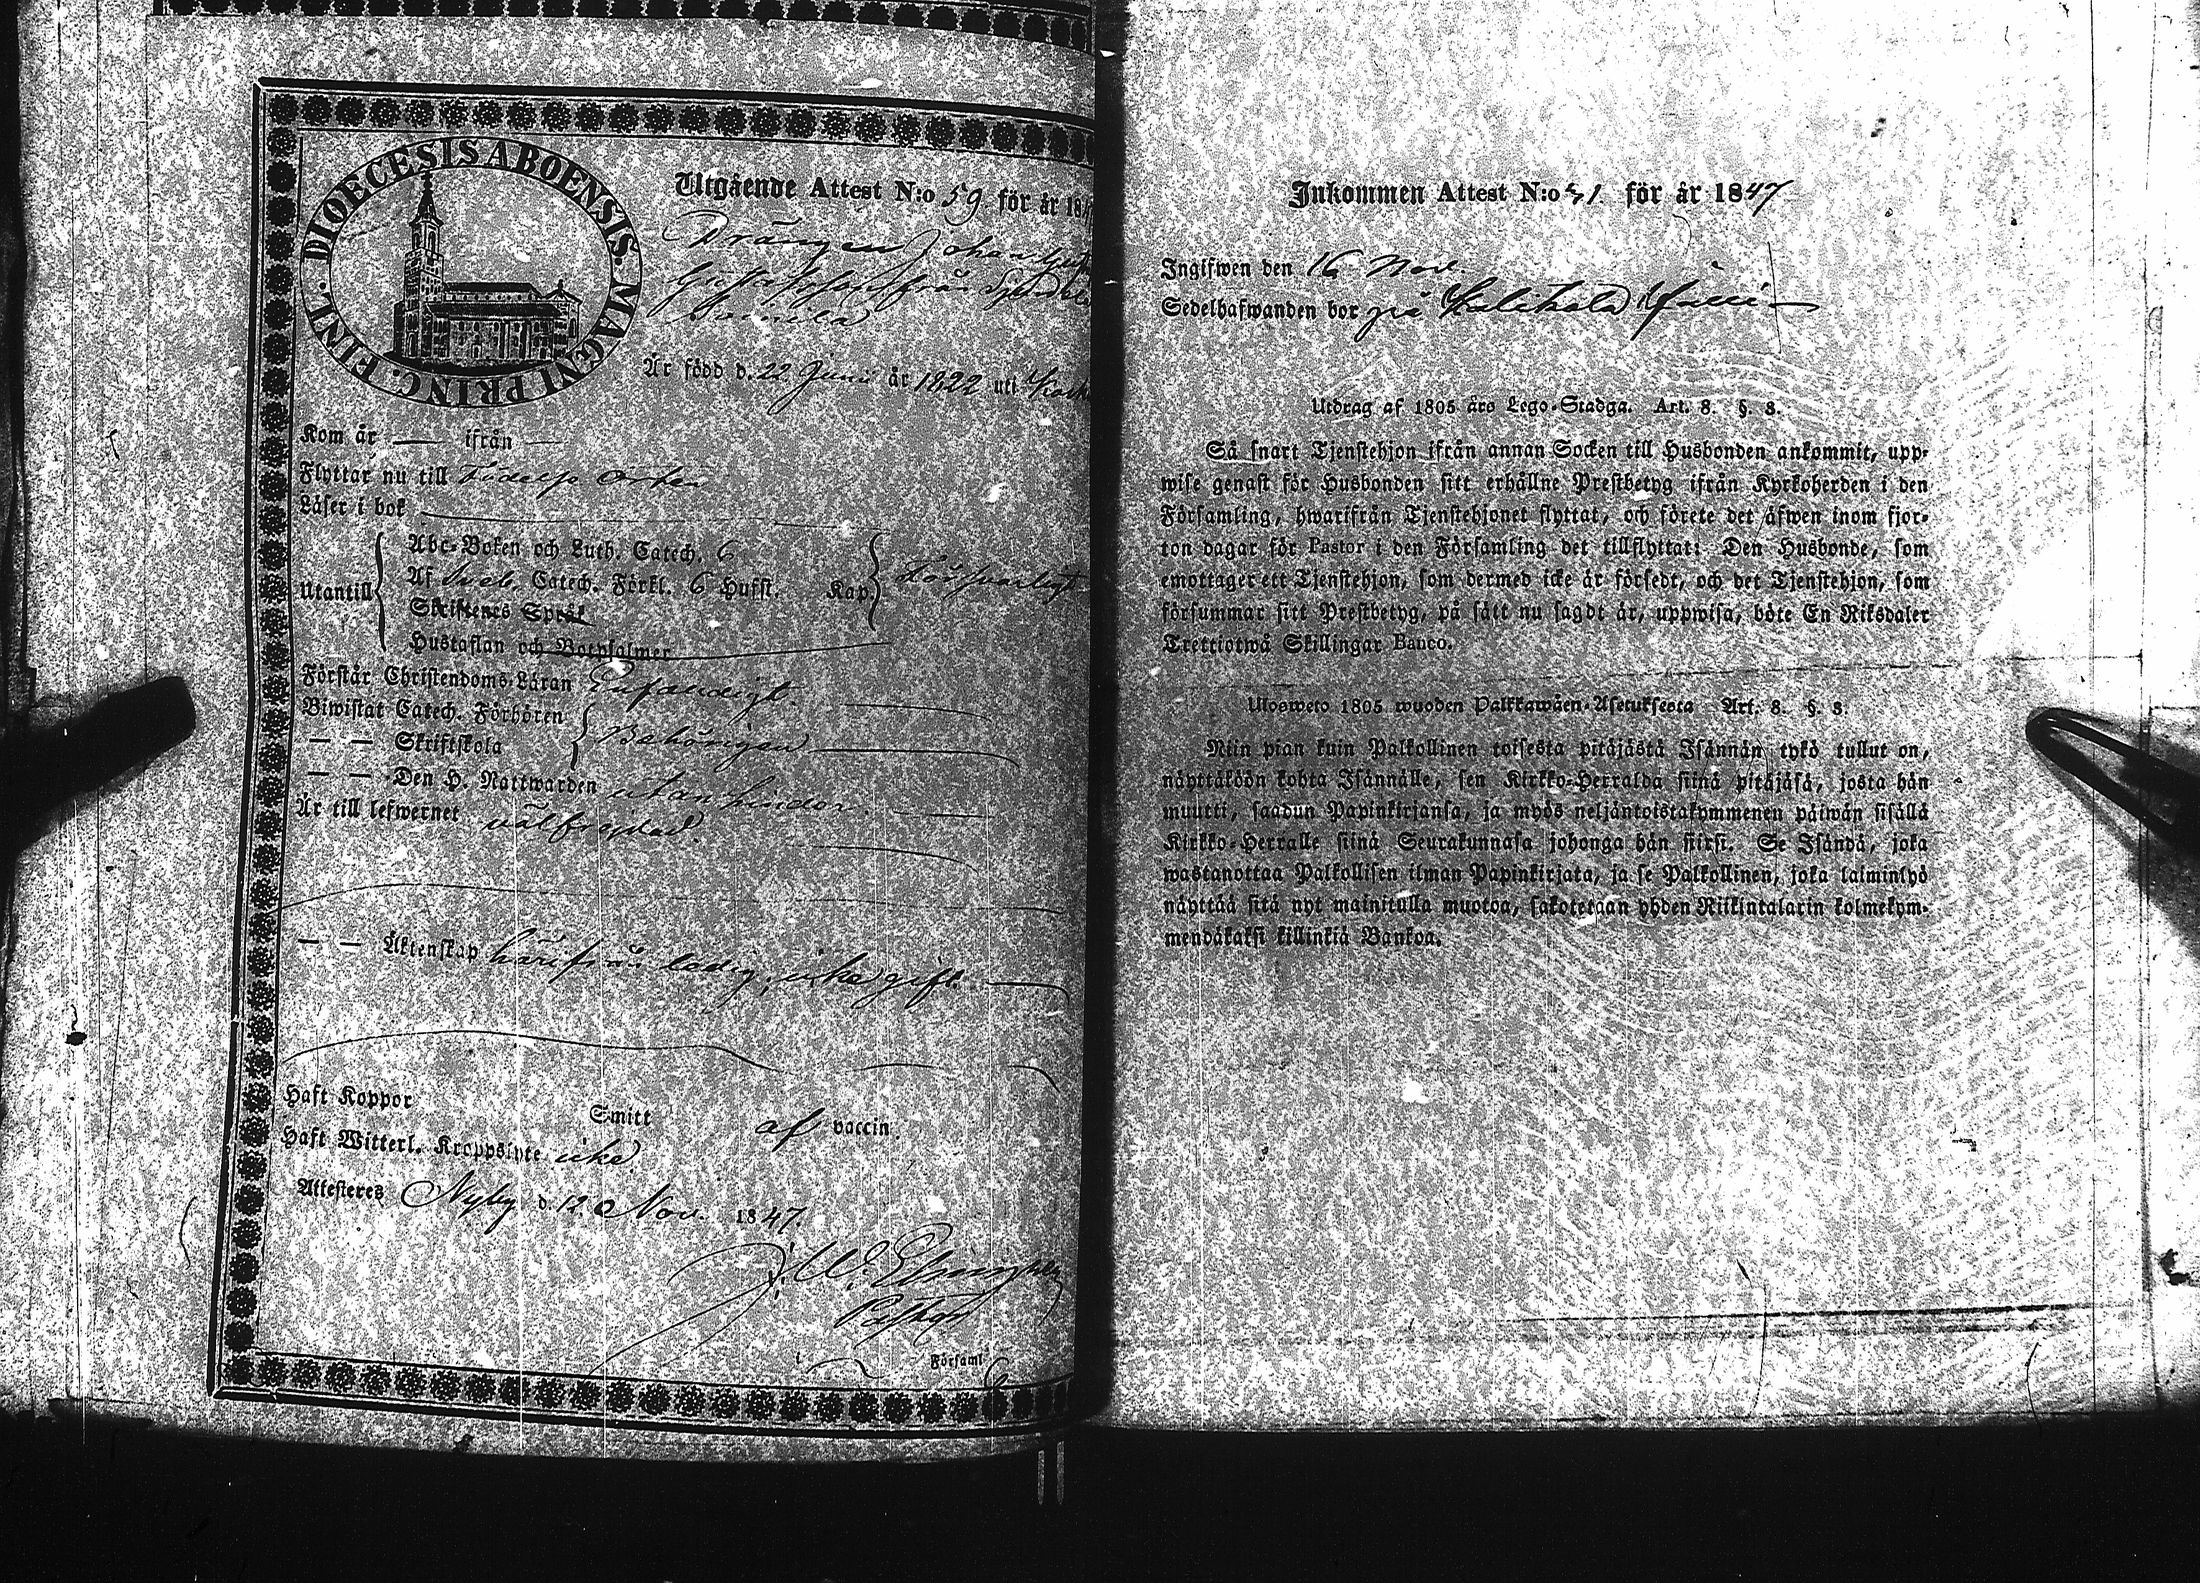 DIOECESIS ABOENSIS. MAGNI PRINC. FINL.
Utgående Attest N:o 59 för år 18
Drängen Johan
Gustafsson från
Är född d. 22 Junii år 1822 uti
Kom år — ifrån —
Flyttar nu till Födelse Orten
Läser i bok
Utantill
Abc-Boken och Luth. Catech. 6
Af Sveb. Catech. Förkl. 6 Hufst. Kap.
Försvarligt
Skriftenes Språk
Hustaflan och Botpsalmer
Förstår Christendoms-Läran Enfaldigt.
Biwistat Catech. Förhören
— — Skriftskola
Behörigen
— — Den H. Nattwarden utan hinder.
Är till lefwernet välfrejdad.
— — Äktenskap härifrån ledig, icke gift.
Haft Koppor Smitt af vaccin.
Haft Witterl. Kroppslyte icke.
Attesteres Nyby d. 12 Nov. 1847.
J. W.
Församl
Inkommen Attest N:o 41 för år 1847
Ingifwen den 16 Nov.
Sedelhafwanden bor på
Utdrag af 1805 års Lego-Stadga. Art. 8. §. 8.
Så snart Tjenstehjon ifrån annan Socken till Husbonden ankommit, upp-
wise genast för Husbonden sitt erhållne Prestbetyg ifrån Kyrkoherden i den
Församling, hwarifrån Tjenstehjonet flyttat, och förete det äfwen inom fjor-
ton dagar för Pastor i den Församling det tillflyttat: Den Husbonde, som
emottager ett Tjenstehjon, som dermed icke är försedt, och det Tjenstehjon, som
försummar sitt Prestbetyg, på sätt nu sagdt är, uppwisa, böte En Riksdaler
Trettiotwå Skillingar Banco.
Ulosweto 1805 wuoden Palkkawäen-Asetuksesta Art. 8. §. 8.
Niin pian kuin Palkollinen toisesta pitäjästä Isännän tykö tullut on,
näyttäköön kohta Isännälle, sen Kirkko-Herralda siinä pitäjäsä, josta hän
muutti, saadun Papinkirjansa, ja myös neljäntoistakymmenen päiwän sisällä
Kirkko-Herralle siinä Seurakunnasa johonga hän siirsi. Se Isändä, joka
wastanottaa Palkollisen ilman Papinkirjata, ja se Palkollinen, joka laiminlyö
näyttää sitä nyt mainitulla muotoa, sakotetaan yhden Riikintalarin kolmekym-
mendäkaksi killinkiä Bankoa.